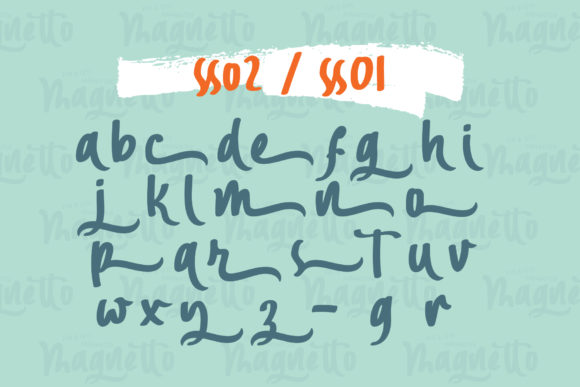 ss02 / ss01
a b c d e f g h i
j k l m n o
p q r s t u v
w x y z - g r